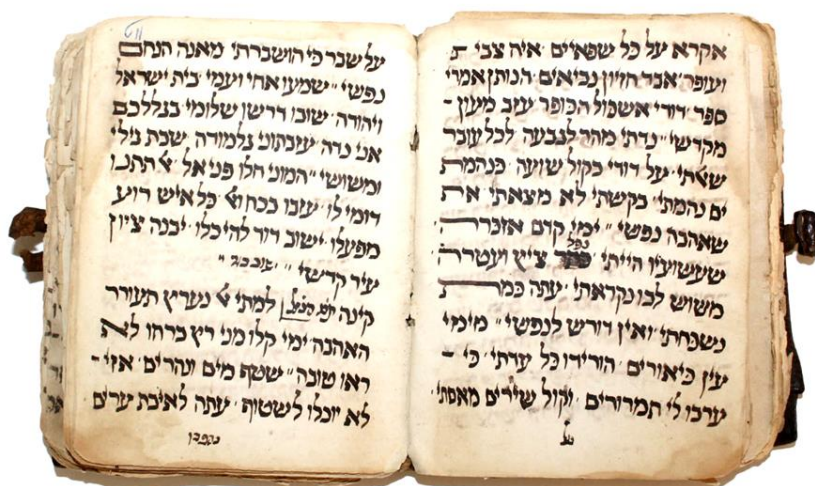 אקרא על כל שפאיים איה צבי ת
ועופר אבד חזיון נביאים הנותן אמרי
ספר דודי אשכול הכופר עזב מעון -
מקדשי נדתי מהר לגבעה לכל עובר
שעתי על דודי בקול שועה כנהמת
ים נהמתי בקשתי לא מצאתי את
שאהבה נפשי ימי קדם אזכרה
שעשועיו הייתי נפל ציץ ועטרה
משוש לבו נקראתי עתה כמת
נשכחתי ואין דורש לנפשי מימי
עין כיאורים הורידו כל עדתי כי -
ערבו לי תמרורים וקול שירים מאסתי
על
על שבר כי הושברתי מאנה הנחם
נפשי שמעו אחי ועמי בית ישראל
ויהודה שובו דרשו שלומי בגללכם
אני נדה עזבתוני גלמודה שבת גילי
ומשושי המוני חלו פני אל התנו
דומי לו עזבו בכחו כל איש רוע
מפעלו ישוב דוד להיכלו יבנה ציון
עיר קדשי
קינה למתי נעריץ תעורר
האהבה ימי קלו מני רץ ברחו לא
ראו טובה שטף מים ונהרים אזי -
לא יוכלו לשטוף עתה לאיבת ערים